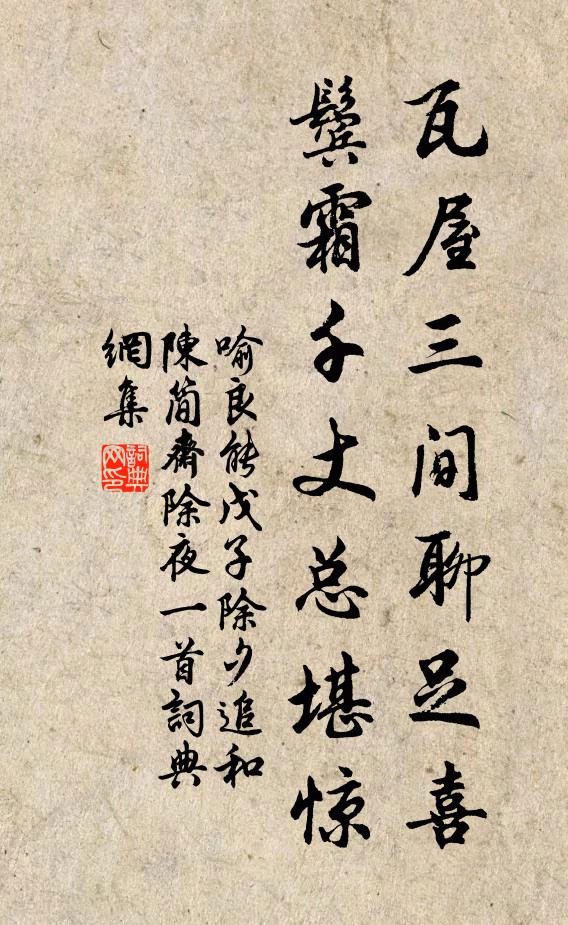 瓦屋三间聊足喜
鬓霜千丈总堪惊
喻良能戊子除夕追和
陳简齋除夜一首詞典
網集
詞典
网印